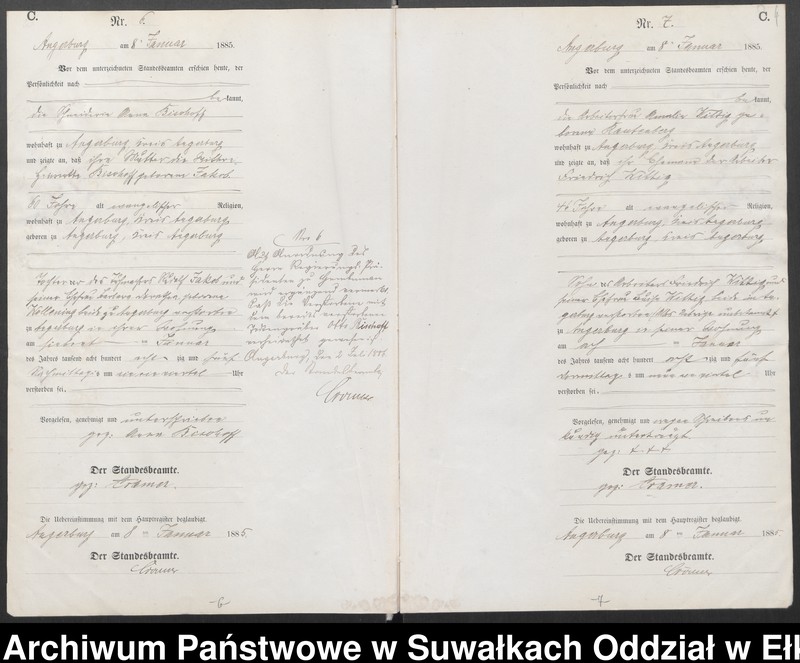 C.
Nr. 6.
Angerburg am 8ten Januar 1885.
Vor dem unterzeichneten Standesbeamten erschien heute, der
Persönlichkeit nach
be kannt,
die Anna Bischoff
wohnhaft zu Angerburg Kreis Angerburg
und zeigte an, daß ihre Mutter die
Henriette Bischoff geborene Jakob
60 Jahre alt evangelischer Religion,
wohnhaft zu Angerburg, Kreis Angerburg
geboren zu Angerburg, Kreis Angerburg
Tochter des Jakob und
seiner Ehefrau geborene
beide zu Angerburg verstorben
zu Angerburg in ihrer Wohnung
am siebten Januar
des Jahres tausend acht hundert acht zig und fünf
Nachmittags um viertel Uhr
verstorben sei.
Vorgelesen, genehmigt und unterschrieben
gez. Anna Bischoff
Der Standesbeamte.
gez: Cramer.
Die Uebereinstimmung mit dem Hauptregister beglaubigt.
Angerburg am 8ten Januar 1885.
Der Standesbeamte.
Cramer
Nro 6
Auf Anordnung des
Herrn Regierungs Prä-
sidenten zu Gumbinnen
wird ergänzend vermerkt
daß die Verstorbene mit
dem bereits verstorbenen
Otto Bischoff
verheirathet gewesen ist
Angerburg, den 2 Juli
Der Standesbeamte
Cramer
-6-
C.
Nr. 7.
Angerburg am 8ten Januar 1885.
Vor dem unterzeichneten Standesbeamten erschien heute, der
Persönlichkeit nach
be kannt,
die Arbeiterfrau Amalie Wittig ge-
borene Rautenberg
wohnhaft zu Angerburg, Kreis Angerburg
und zeigte an, daß ihr Ehemann der Arbeiter
Friedrich Wittig
46 Jahre alt evangelischer Religion,
wohnhaft zu Angerburg, Kreis Angerburg
geboren zu Angerburg Kreis Angerburg
Sohn des Arbeiters Friedrich Wittig und
seiner Ehefrau Wittig beide in An-
gerburg verstorben
zu Angerburg in seiner Wohnung
am acht Januar
des Jahres tausend acht hundert acht zig und fünf
Vormittags um viertel Uhr
verstorben sei.
Vorgelesen, genehmigt und wegen Schreibens un-
kundig unterkreuzt
gez: + + +
Der Standesbeamte.
gez: Cramer.
Die Uebereinstimmung mit dem Hauptregister beglaubigt.
Angerburg am 8ten Januar 1885
Der Standesbeamte.
Cramer
-7-
Archiwum Państwowe w Suwałkach Oddział w Ełk